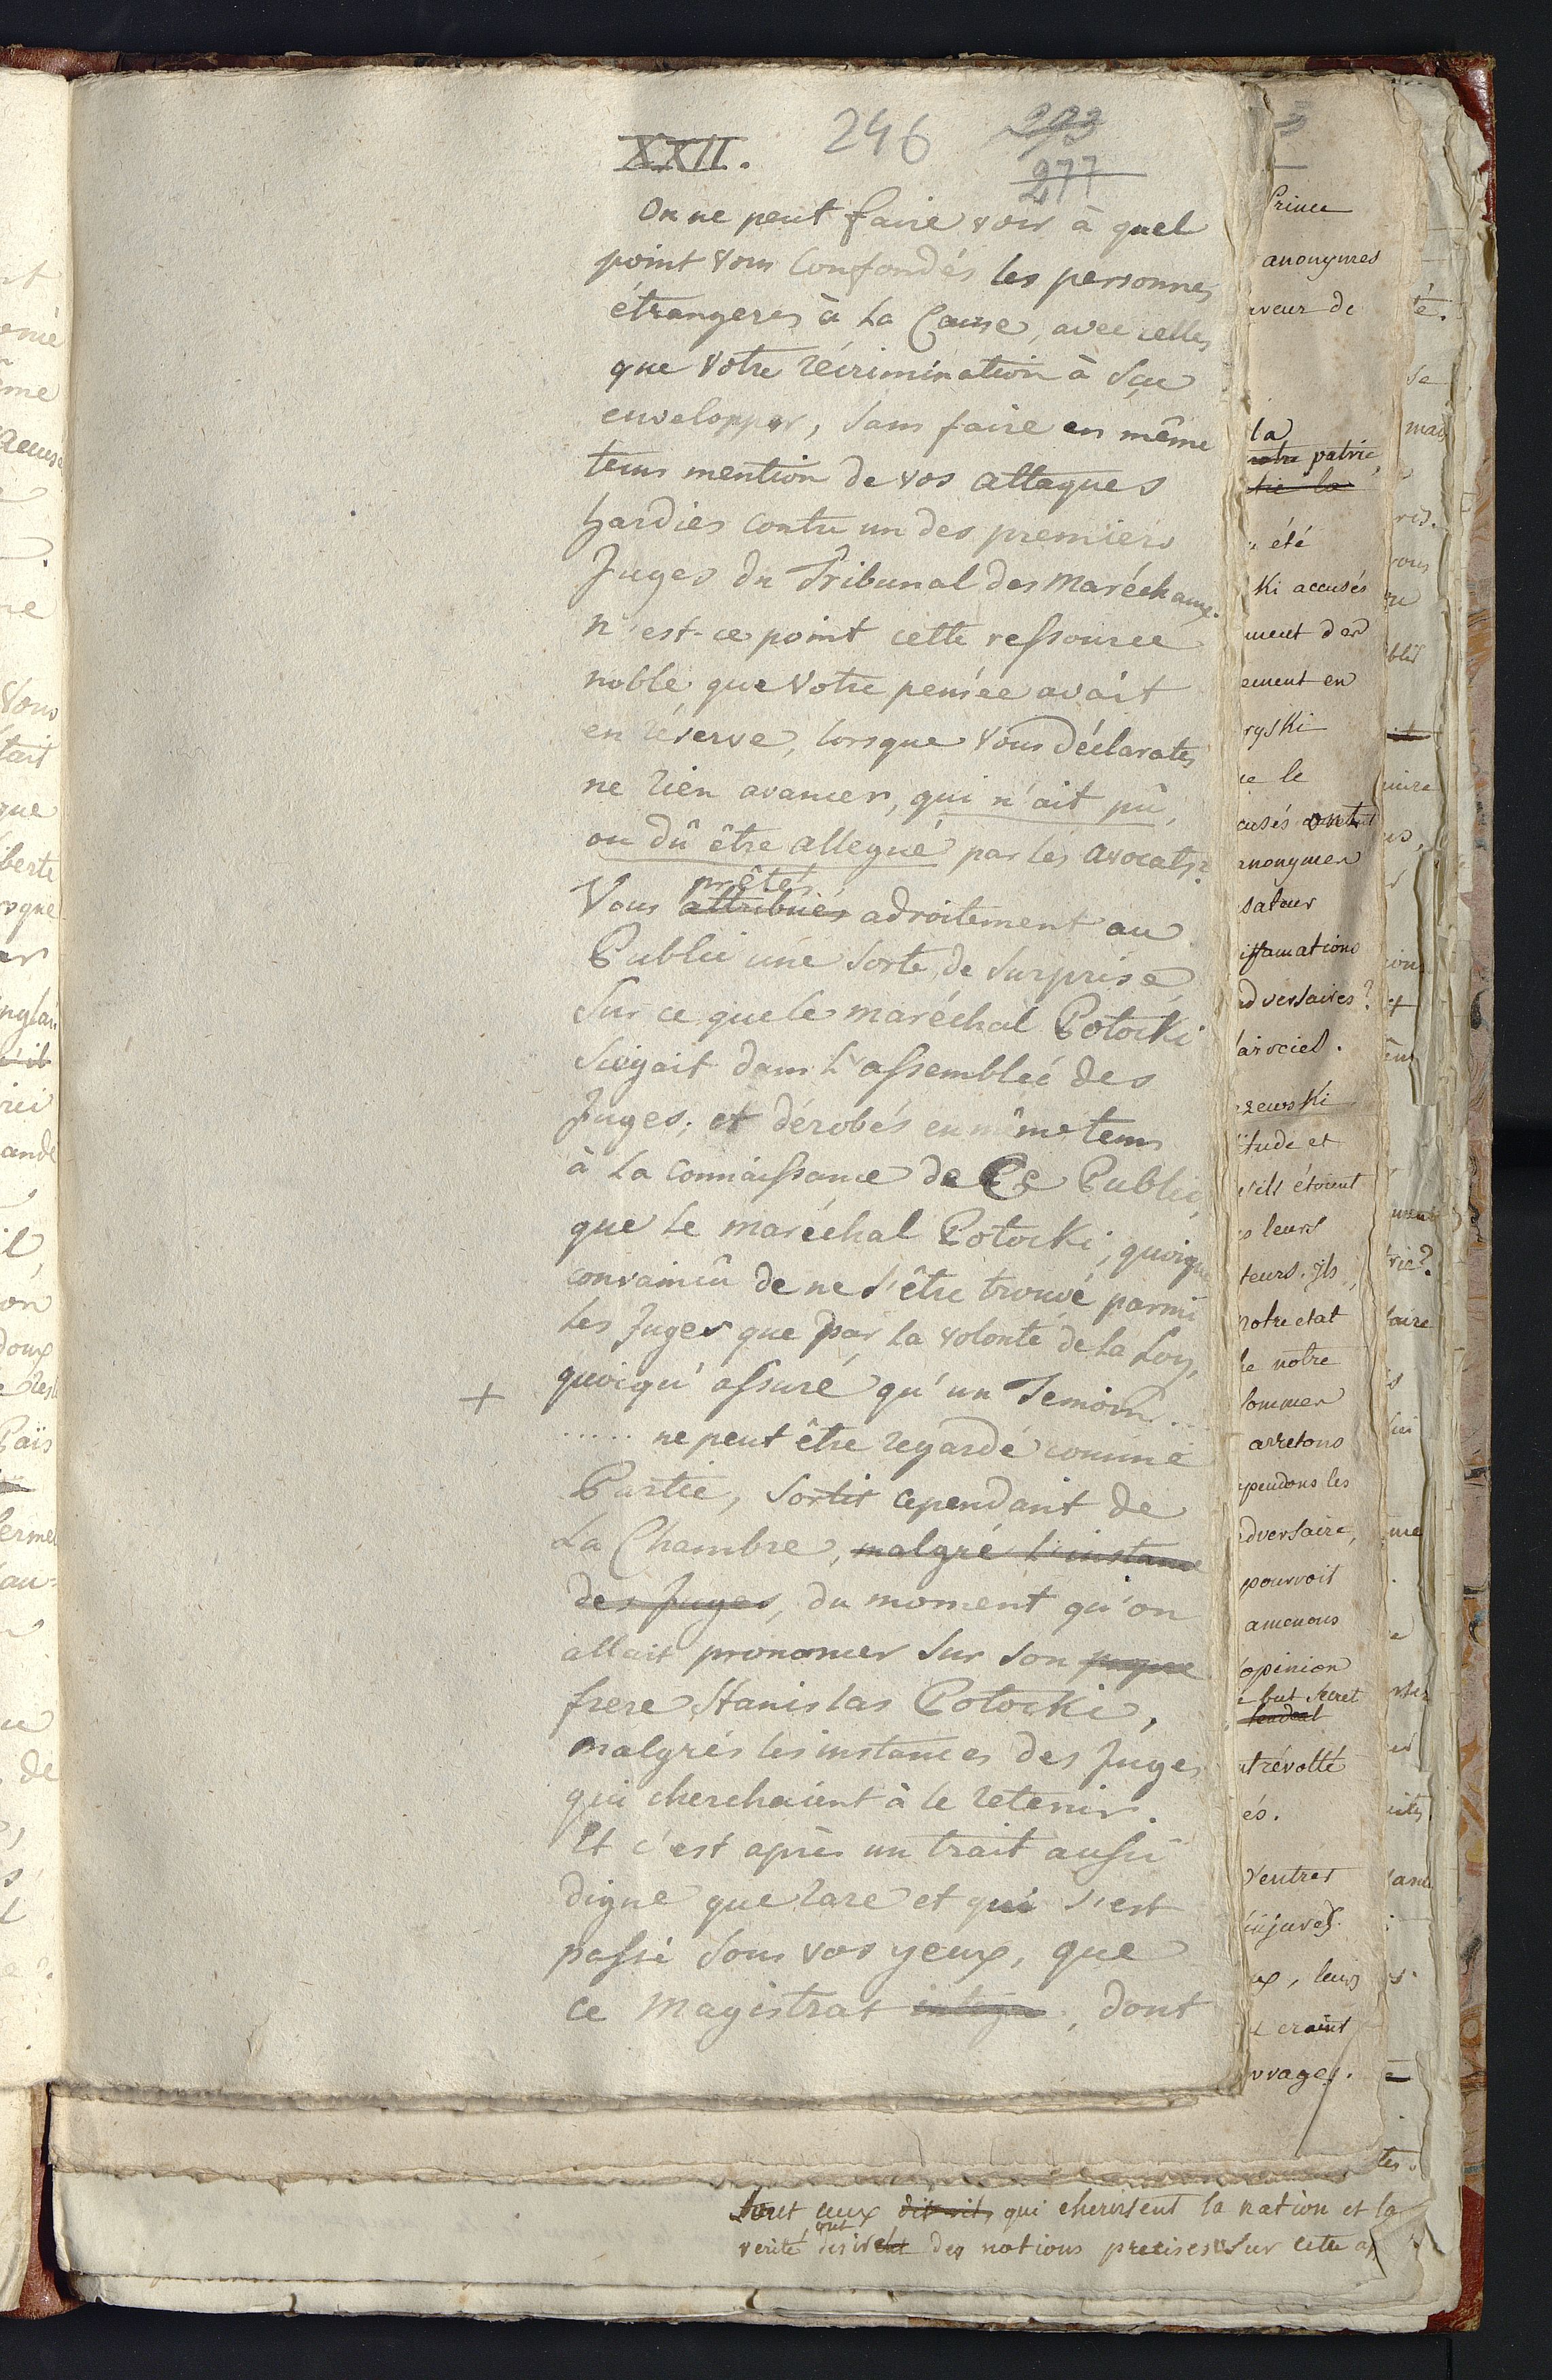 XXII.
246
293
277
On ne peut faire voir à quel
point vous confondés les personnes
étrangeres à la Cause, avec celles
que votre récrimination à sçu
envelopper, sans faire en même
tems mention de vos attaques
hardies contre un des premiers
Juges du Tribunal des Maréchaux.
n'est-ce point cette ressource
noble que votre pensée avait
en réserve, lorsque vous déclarates
ne rien avancer, qui n'ait pû,
ou dû être allegué par les avocats?
prêtés
Vous attribués adroitement au
Public une sorte de surprise,
sur ce que le maréchal Potocki
siégait dans l'assemblée des
Juges; et dérobés en même tems
à la connaissance de Ce Public,
que le maréchal Potocki, quoique
convaincû de ne s'être trouvé parmi
les Juges que par la volonté de la Loy,
+ quoiqu'assuré qu'un Temoin ...
..... ne peut être regardé comme
Partie, sortit cependant de
la Chambre, malgré l'instance
des Juges, du moment qu'on
allait prononcer sur son
frere Stanislas Potocki,
malgrés les instances des Juges
qui cherchaient à le retenir.
Et c'est après un trait aussi
digne que rare et qui s'est
passé sous vos yeux, que
ce Magistrat integre, dont
Prince
anonymes
aveur de
la
notre patrie,
tie la
été
ki accusés
ement en
ryski
ce le
cusés
anonymes
sateur
iffamations
adversaires?
zewski
itude et
s'ils étoient
s leurs
teurs. Ils
notre etat
de notre
sommes
arretons
spendons les
adversaire,
pourroit
amenons
opinion
but secret
révolté
és.
ventres
injures.
ux, leurs
craint
uvrages.
ceux qui cherissent la nation et la
verité, ont des notions precises sur cette